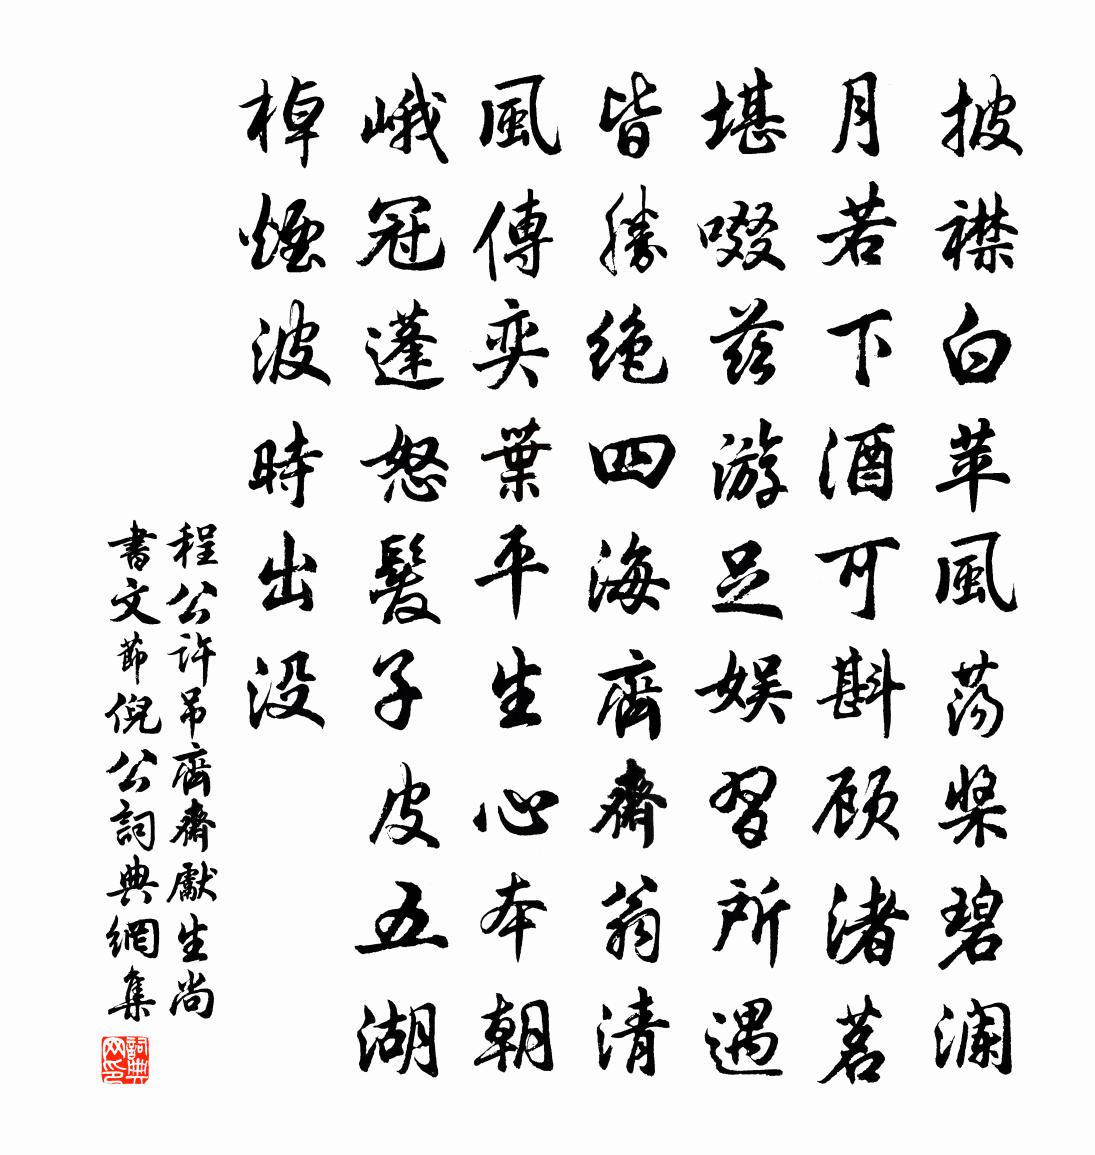 披襟白苹風荡桨碧澜
月若下酒可斟顾渚茗
堪啜兹游足娱習所遇
皆勝绝四海齊齋翁清
風傳奕葉平生心本朝
峨冠蓬怒髮子皮五湖
棹煙波時出没
程公許吊齊齋獻生尚
書文節倪公詞典網集
詞典网印